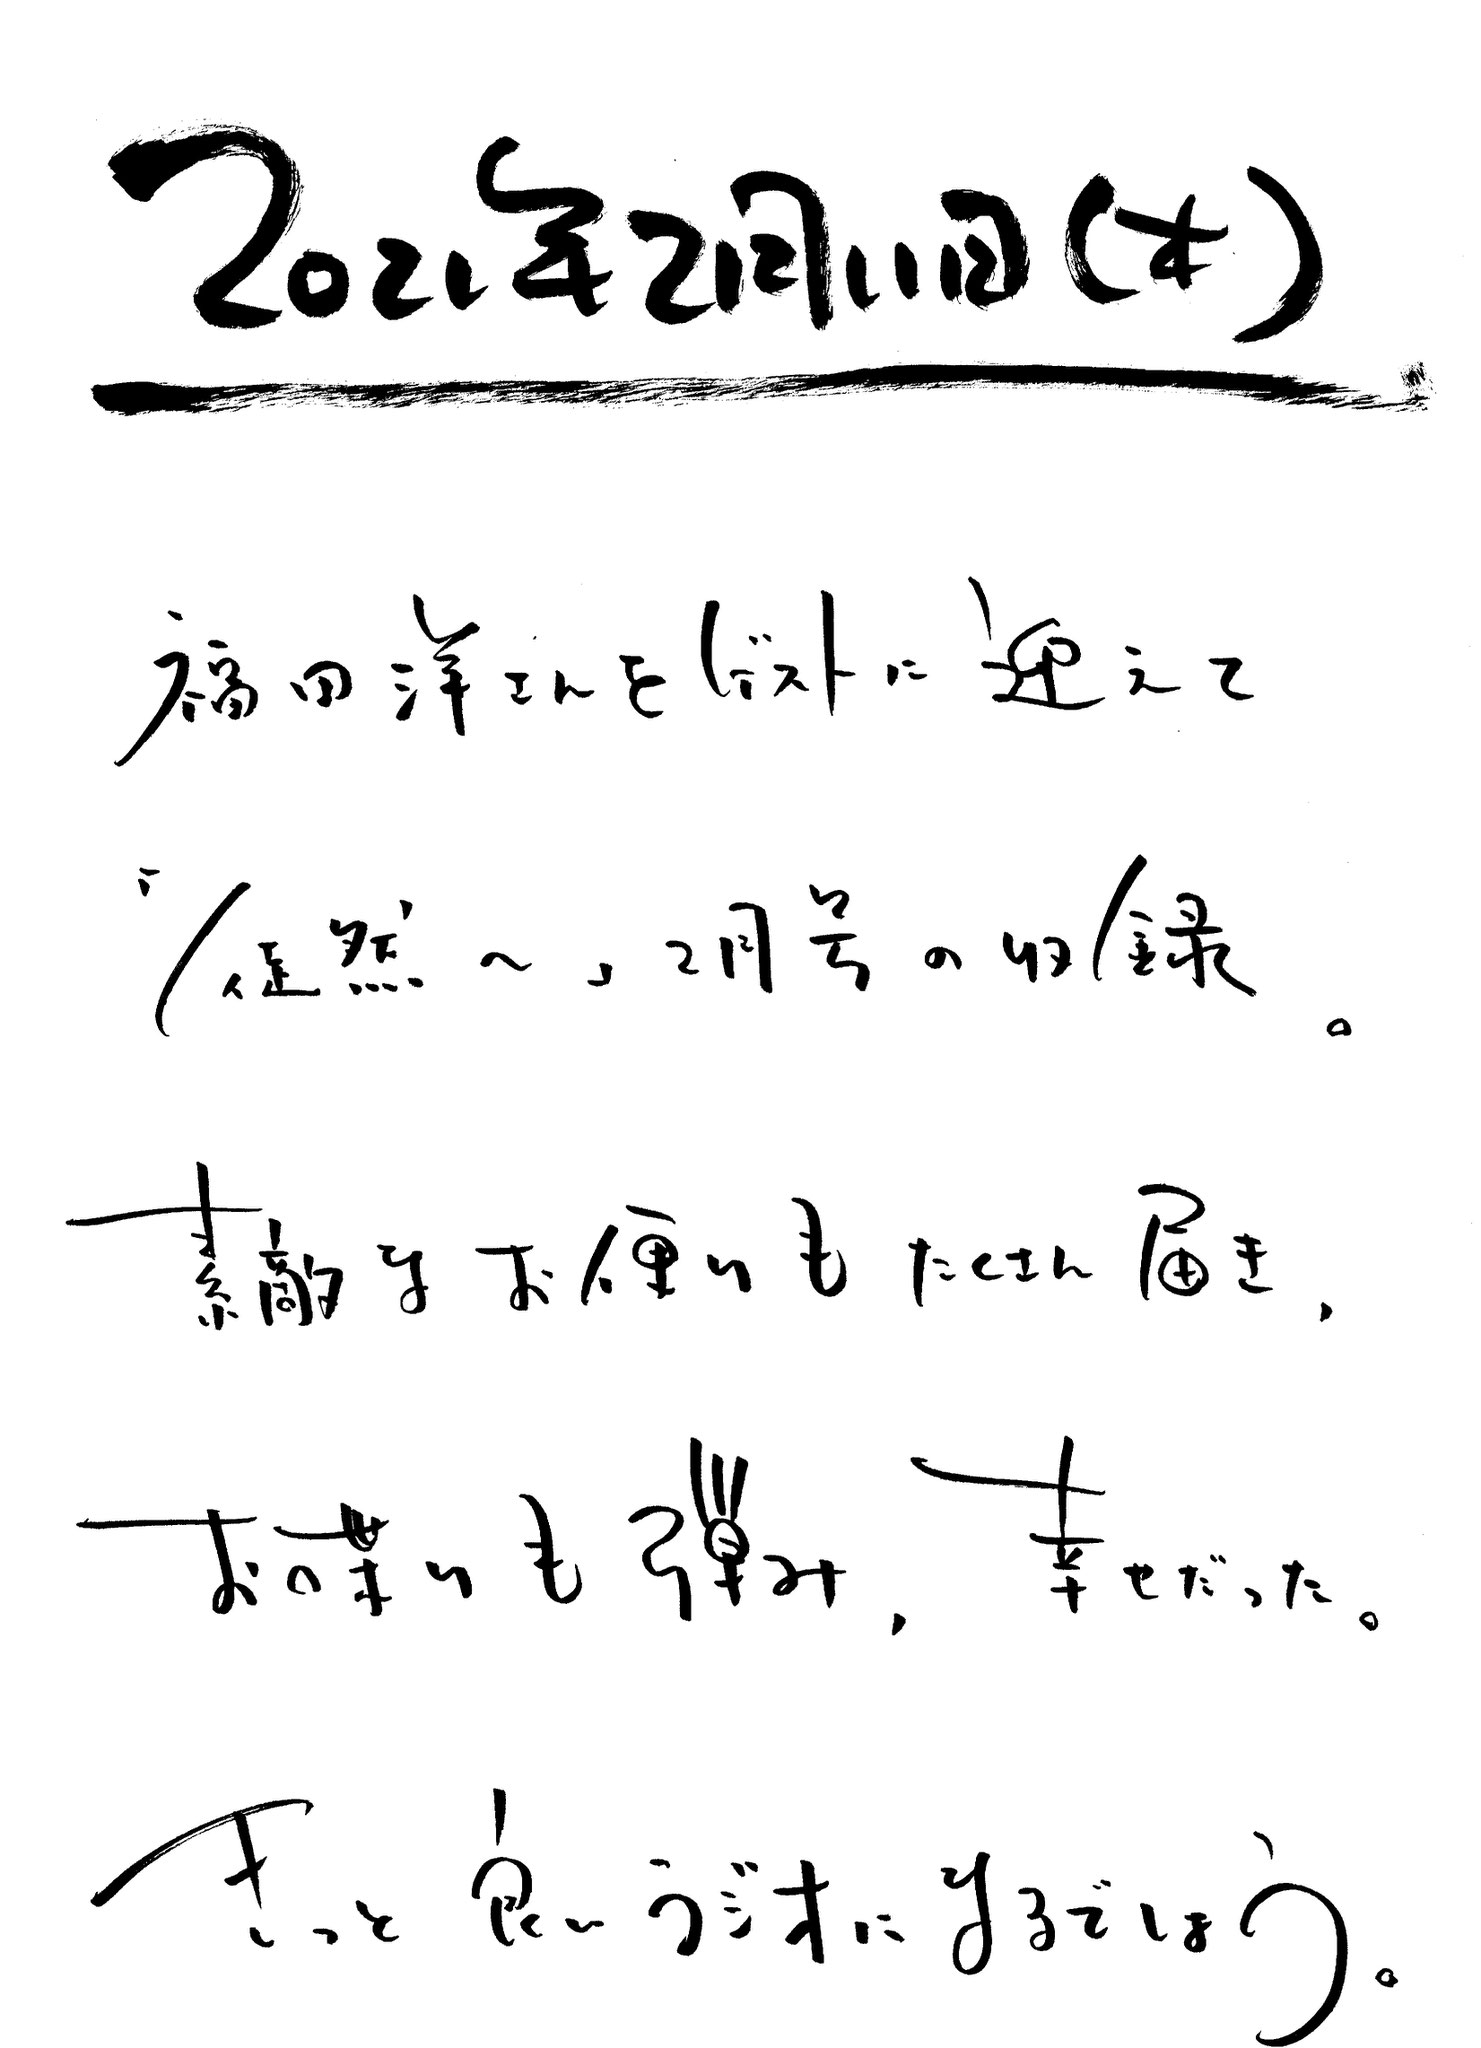 2021年2月11日(木)
福田洋さんをゲストに迎えて
「徒然〜」2月号の収録。
素敵なお便りもたくさん届き、
お喋りも弾み、幸せだった。
きっと良いラジオになるでしょう。